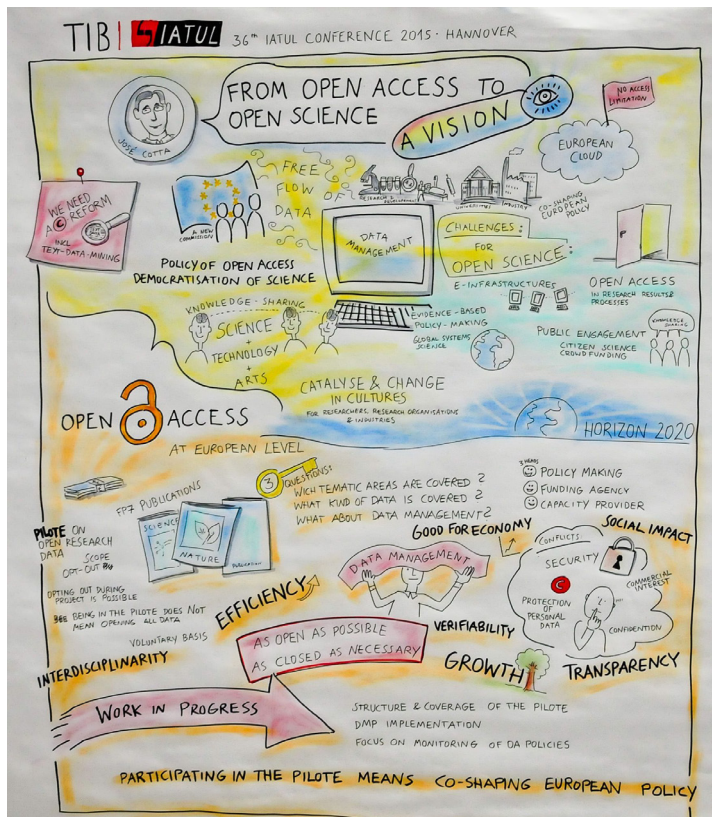 TIB IATUL 36TH IATUL CONFERENCE 2015 · HANNOVER
FROM OPEN ACCESS TO
OPEN SCIENCE
A VISION
JOSÉ COTTA
NO ACCESS
LIMITATION
EUROPEAN
CLOUD
WE NEED
A © REFORM
INCL
TEXT-DATA-MINING
A NEW
COMMISSION
FREE
FLOW OF
DATA
RESEARCH &
UNIVERSITIES
INDUSTRY
CO-SHAPING
EUROPEAN
POLICY
DATA
MANAGEMENT
CHALLENGES:
FOR
OPEN SCIENCE:
POLICY OF OPEN ACCESS
DEMOCRATISATION OF SCIENCE
E-INFRASTRUCTURES
OPEN ACCESS
IN RESEARCH RESULTS &
PROCESSES
KNOWLEDGE-SHARING
SCIENCE
+
TECHNOLOGY
+
ARTS
EVIDENCE-BASED
POLICY-MAKING
GLOBAL SYSTEMS
SCIENCE
KNOWLEDGE
SHARING
PUBLIC ENGAGEMENT
CITIZEN SCIENCE
CROWDFUNDING
CATALYSE & CHANGE
IN CULTURES
FOR RESEARCHERS, RESEARCH ORGANISATIONS
& INDUSTRIES
OPEN ACCESS
AT EUROPEAN LEVEL
HORIZON 2020
FP7 PUBLICATIONS
SCIENCE
NATURE
PUBLICATION
3 QUESTIONS:
WICH TEMATIC AREAS ARE COVERED?
WHAT KIND OF DATA IS COVERED?
WHAT ABOUT DATA MANAGEMENT?
POLICY MAKING
FUNDING AGENCY
CAPACITY PROVIDER
PILOTE ON
OPEN RESEARCH
DATA
SCOPE
OPT-OUT
OPTING OUT DURING
PROJECT IS POSSIBLE
BEING IN THE PILOTE DOES NOT
MEAN OPENING ALL DATA
VOLUNTARY BASIS
GOOD FOR ECONOMY
SOCIAL IMPACT
DATA MANAGEMENT
EFFICIENCY
CONFLICTS:
SECURITY
COMMERCIAL
INTEREST
©
PROTECTION
OF
PERSONAL
DATA
CONFIDENTION
INTERDISCIPLINARITY
AS OPEN AS POSSIBLE
AS CLOSED AS NECESSARY
VERIFIABILITY
GROWTH
TRANSPARENCY
WORK IN PROGRESS
STRUCTURE & COVERAGE OF THE PILOTE
DMP IMPLEMENTATION
FOCUS ON MONITORING OF OA POLICIES
PARTICIPATING IN THE PILOTE MEANS CO-SHAPING EUROPEAN POLICY